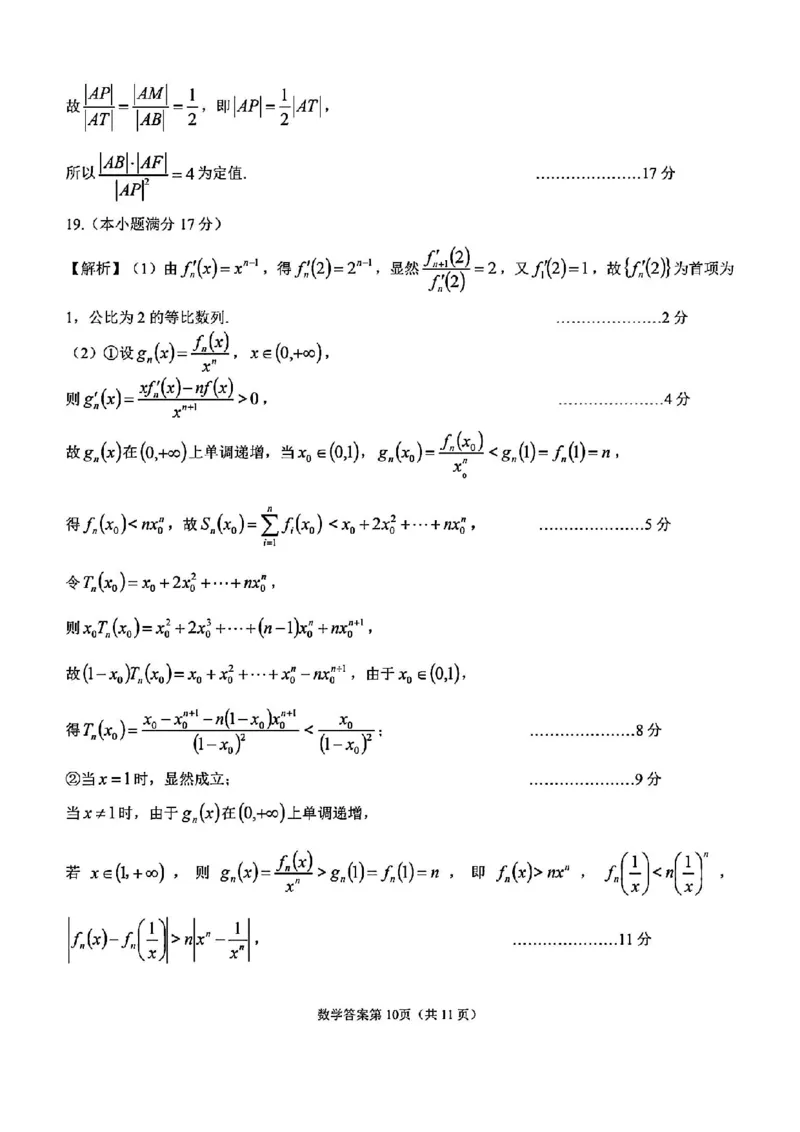 故|AP|/|AT|=|AM|/|AB|=1/2，即|AP|=1/2|AT|，
所以|AB|·|AF|/|AP|²=4为定值. …………………17分
19.（本小题满分17分）
【解析】（1）由fₙ′(x)=xⁿ⁻¹，得fₙ′(2)=2ⁿ⁻¹，显然fₙ₊₁′(2)/fₙ′(2)=2，又f₁′(2)=1，故{fₙ′(2)}为首项为
1，公比为2的等比数列. …………………2分
（2）①设gₙ(x)=fₙ(x)/xⁿ，x∈(0,+∞)，
则gₙ′(x)=(xfₙ′(x)-nf(x))/xⁿ⁺¹>0， …………………4分
故gₙ(x)在(0,+∞)上单调递增，当x₀∈(0,1)，gₙ(x₀)=fₙ(x₀)/x₀ⁿ<gₙ(1)=fₙ(1)=n，
得fₙ(x₀)<nx₀ⁿ，故Sₙ(x₀)=∑ᵢ₌₁ⁿfᵢ(x₀)<x₀+2x₀²+⋯+nx₀ⁿ， …………………5分
令Tₙ(x₀)=x₀+2x₀²+⋯+nx₀ⁿ，
则x₀Tₙ(x₀)=x₀²+2x₀³+⋯+(n-1)x₀ⁿ+nx₀ⁿ⁺¹，
故(1-x₀)Tₙ(x₀)=x₀+x₀²+⋯+x₀ⁿ-nx₀ⁿ⁺¹，由于x₀∈(0,1)，
得Tₙ(x₀)=(x₀-x₀ⁿ⁺¹-n(1-x₀)x₀ⁿ⁺¹)/(1-x₀)²<x₀/(1-x₀)²； …………………8分
②当x=1时，显然成立； …………………9分
当x≠1时，由于gₙ(x)在(0,+∞)上单调递增，
若 x∈(1,+∞)，则 gₙ(x)=fₙ(x)/xⁿ>gₙ(1)=fₙ(1)=n，即 fₙ(x)>nxⁿ，fₙ(1/x)<n(1/x)ⁿ，
|fₙ(x)-fₙ(1/x)|>n|xⁿ-1/xⁿ|， …………………11分
数学答案第10页（共11页）